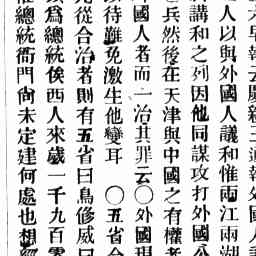 早報云慶親王通報外國
之人以與外國人議和惟兩江兩湖
講和之列因他同謀攻打外國公
兵然後在天津與中國之有權者
國人者而一治其罪云〇外國現
待難免激生他變耳 〇五省合
從合治者則有五省曰鳥修威曰
為總統俟西人來歲一千九百零
總統衙門尚未定建何處也想經